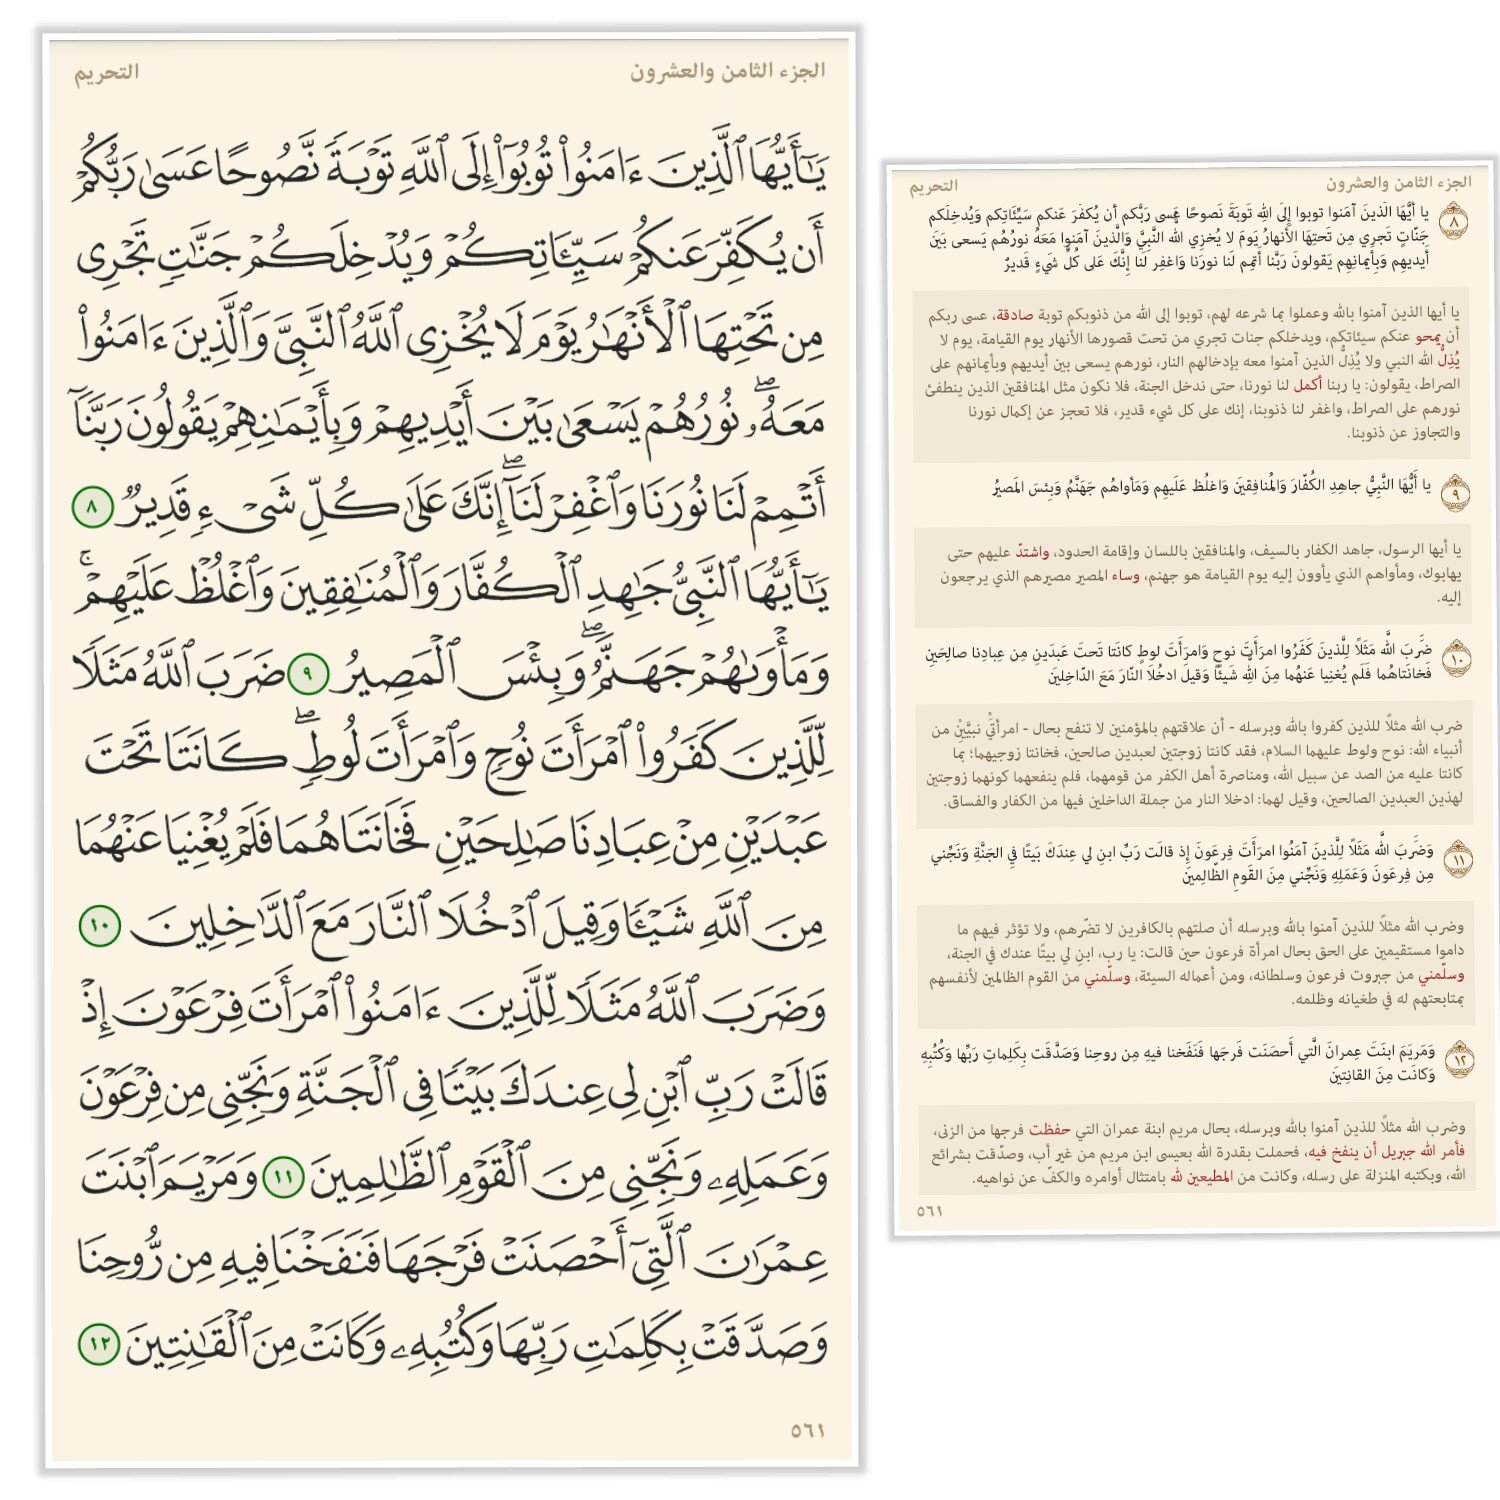 الجزء الثامن والعشرون
التحريم
يَٰٓأَيُّهَا ٱلَّذِينَ ءَامَنُوا۟ تُوبُوٓا۟ إِلَى ٱللَّهِ تَوْبَةً نَّصُوحًا عَسَىٰ رَبُّكُمْ
أَن يُكَفِّرَ عَنكُمْ سَيِّـَٔاتِكُمْ وَيُدْخِلَكُمْ جَنَّٰتٍ تَجْرِى
مِن تَحْتِهَا ٱلْأَنْهَٰرُ يَوْمَ لَا يُخْزِى ٱللَّهُ ٱلنَّبِىَّ وَٱلَّذِينَ ءَامَنُوا۟
مَعَهُۥ ۖ نُورُهُمْ يَسْعَىٰ بَيْنَ أَيْدِيهِمْ وَبِأَيْمَٰنِهِمْ يَقُولُونَ رَبَّنَآ
أَتْمِمْ لَنَا نُورَنَا وَٱغْفِرْ لَنَآ ۖ إِنَّكَ عَلَىٰ كُلِّ شَىْءٍ قَدِيرٌ ٨
يَٰٓأَيُّهَا ٱلنَّبِىُّ جَٰهِدِ ٱلْكُفَّارَ وَٱلْمُنَٰفِقِينَ وَٱغْلُظْ عَلَيْهِمْ ۚ
وَمَأْوَىٰهُمْ جَهَنَّمُ ۖ وَبِئْسَ ٱلْمَصِيرُ ٩ ضَرَبَ ٱللَّهُ مَثَلًا
لِّلَّذِينَ كَفَرُوا۟ ٱمْرَأَتَ نُوحٍ وَٱمْرَأَتَ لُوطٍ ۖ كَانَتَا تَحْتَ
عَبْدَيْنِ مِنْ عِبَادِنَا صَٰلِحَيْنِ فَخَانَتَاهُمَا فَلَمْ يُغْنِيَا عَنْهُمَا
مِنَ ٱللَّهِ شَيْـًٔا وَقِيلَ ٱدْخُلَا ٱلنَّارَ مَعَ ٱلدَّٰخِلِينَ ١٠
وَضَرَبَ ٱللَّهُ مَثَلًا لِّلَّذِينَ ءَامَنُوا۟ ٱمْرَأَتَ فِرْعَوْنَ إِذْ
قَالَتْ رَبِّ ٱبْنِ لِى عِندَكَ بَيْتًا فِى ٱلْجَنَّةِ وَنَجِّنِى مِن فِرْعَوْنَ
وَعَمَلِهِۦ وَنَجِّنِى مِنَ ٱلْقَوْمِ ٱلظَّٰلِمِينَ ١١ وَمَرْيَمَ ٱبْنَتَ
عِمْرَٰنَ ٱلَّتِىٓ أَحْصَنَتْ فَرْجَهَا فَنَفَخْنَا فِيهِ مِن رُّوحِنَا
وَصَدَّقَتْ بِكَلِمَٰتِ رَبِّهَا وَكُتُبِهِۦ وَكَانَتْ مِنَ ٱلْقَٰنِتِينَ ١٢
٥٦١
الجزء الثامن والعشرون
التحريم
٨ يا أَيُّهَا الَّذينَ آمَنوا توبوا إِلَى اللَّهِ تَوبَةً نَصوحًا عَسى رَبُّكُم أَن يُكَفِّرَ عَنكُم سَيِّئَاتِكُم وَيُدخِلَكُم
جَنّاتٍ تَجري مِن تَحتِهَا الأَنهارُ يَومَ لا يُخزِي اللَّه النَّبِيَّ وَالَّذينَ آمَنوا مَعَهُ نورُهُم يَسعى بَينَ
أَيديهِم وَبِأَيمانِهِم يَقولونَ رَبَّنا أَتمِم لَنا نورَنا وَاغفِر لَنا إِنَّكَ عَلى كُلِّ شَيءٍ قَديرٌ
يا أيها الذين آمنوا بالله وعملوا بما شرعه لهم، توبوا إلى الله من ذنوبكم توبة صادقة، عسى ربكم
أن يمحو عنكم سيئاتكم، ويدخلكم جنات تجري من تحت قصورها الأنهار يوم القيامة، يوم لا
يُذِلُّ الله النبي ولا يُذِلُّ الذين آمنوا معه بإدخالهم النار، نورهم يسعى بين أيديهم وبأيمانهم على
الصراط، يقولون: يا ربنا أكمل لنا نورنا، حتى ندخل الجنة، فلا نكون مثل المنافقين الذين ينطفئ
نورهم على الصراط، واغفر لنا ذنوبنا، إنك على كل شيء قدير، فلا تعجز عن إكمال نورنا
والتجاوز عن ذنوبنا.
٩ يا أَيُّهَا النَّبِيُّ جاهِدِ الكُفّارَ وَالمُنافِقينَ وَاغلُظ عَلَيهِم وَمَأواهُم جَهَنَّمُ وَبِئسَ المَصيرُ
يا أيها الرسول، جاهد الكفار بالسيف، والمنافقين باللسان وإقامة الحدود، واشتدّ عليهم حتى
يهابوك، ومأواهم الذي يأوون إليه يوم القيامة هو جهنم، وساء المصير مصيرهم الذي يرجعون
إليه.
١٠ ضَرَبَ اللَّه مَثَلًا لِلَّذينَ كَفَرُوا امرَأَتَ نوحٍ وَامرَأَتَ لوطٍ كانَتا تَحتَ عَبدَينِ مِن عِبادِنا صالِحَينِ
فَخانَتاهُما فَلَم يُغنِيا عَنهُما مِنَ اللَّهِ شَيئًا وَقيلَ ادخُلَا النّارَ مَعَ الدّاخِلينَ
ضرب الله مثلًا للذين كفروا بالله وبرسله - أن علاقتهم بالمؤمنين لا تنفع بحال - امرأتَيْ نبيَّيْنِ من
أنبياء الله: نوح ولوط عليهما السلام، فقد كانتا زوجتين لعبدين صالحين، فخانتا زوجيهما؛ بما
كانتا عليه من الصد عن سبيل الله، ومناصرة أهل الكفر من قومهما، فلم ينفعهما كونهما زوجتين
لهذين العبدين الصالحين، وقيل لهما: ادخلا النار من جملة الداخلين فيها من الكفار والفساق.
١١ وَضَرَبَ اللَّه مَثَلًا لِلَّذينَ آمَنُوا امرَأَتَ فِرعَونَ إِذ قالَت رَبِّ ابنِ لي عِندَكَ بَيتًا فِي الجَنَّةِ وَنَجِّني
مِن فِرعَونَ وَعَمَلِهِ وَنَجِّني مِنَ القَومِ الظّالِمينَ
وضرب الله مثلًا للذين آمنوا بالله وبرسله أن صلتهم بالكافرين لا تضّرهم، ولا تؤثر فيهم ما
داموا مستقيمين على الحق بحال امرأة فرعون حين قالت: يا رب، ابنِ لي بيتًا عندك في الجنة،
وسلّمني من جبروت فرعون وسلطانه، ومن أعماله السيئة، وسلّمني من القوم الظالمين لأنفسهم
بمتابعتهم له في طغيانه وظلمه.
١٢ وَمَريَمَ ابنَتَ عِمرانَ الَّتي أَحصَنَت فَرجَها فَنَفَخنا فيهِ مِن روحِنا وَصَدَّقَت بِكَلِماتِ رَبِّها وَكُتُبِهِ
وَكانَت مِنَ القانِتينَ
وضرب الله مثلًا للذين آمنوا بالله وبرسله، بحال مريم ابنة عمران التي حفظت فرجها من الزنى،
فأمر الله جبريل أن ينفخ فيه، فحملت بقدرة الله بعيسى ابن مريم من غير أب، وصدّقت بشرائع
الله، وبكتبه المنزلة على رسله، وكانت من المطيعين لله بامتثال أوامره والكفّ عن نواهيه.
٥٦١